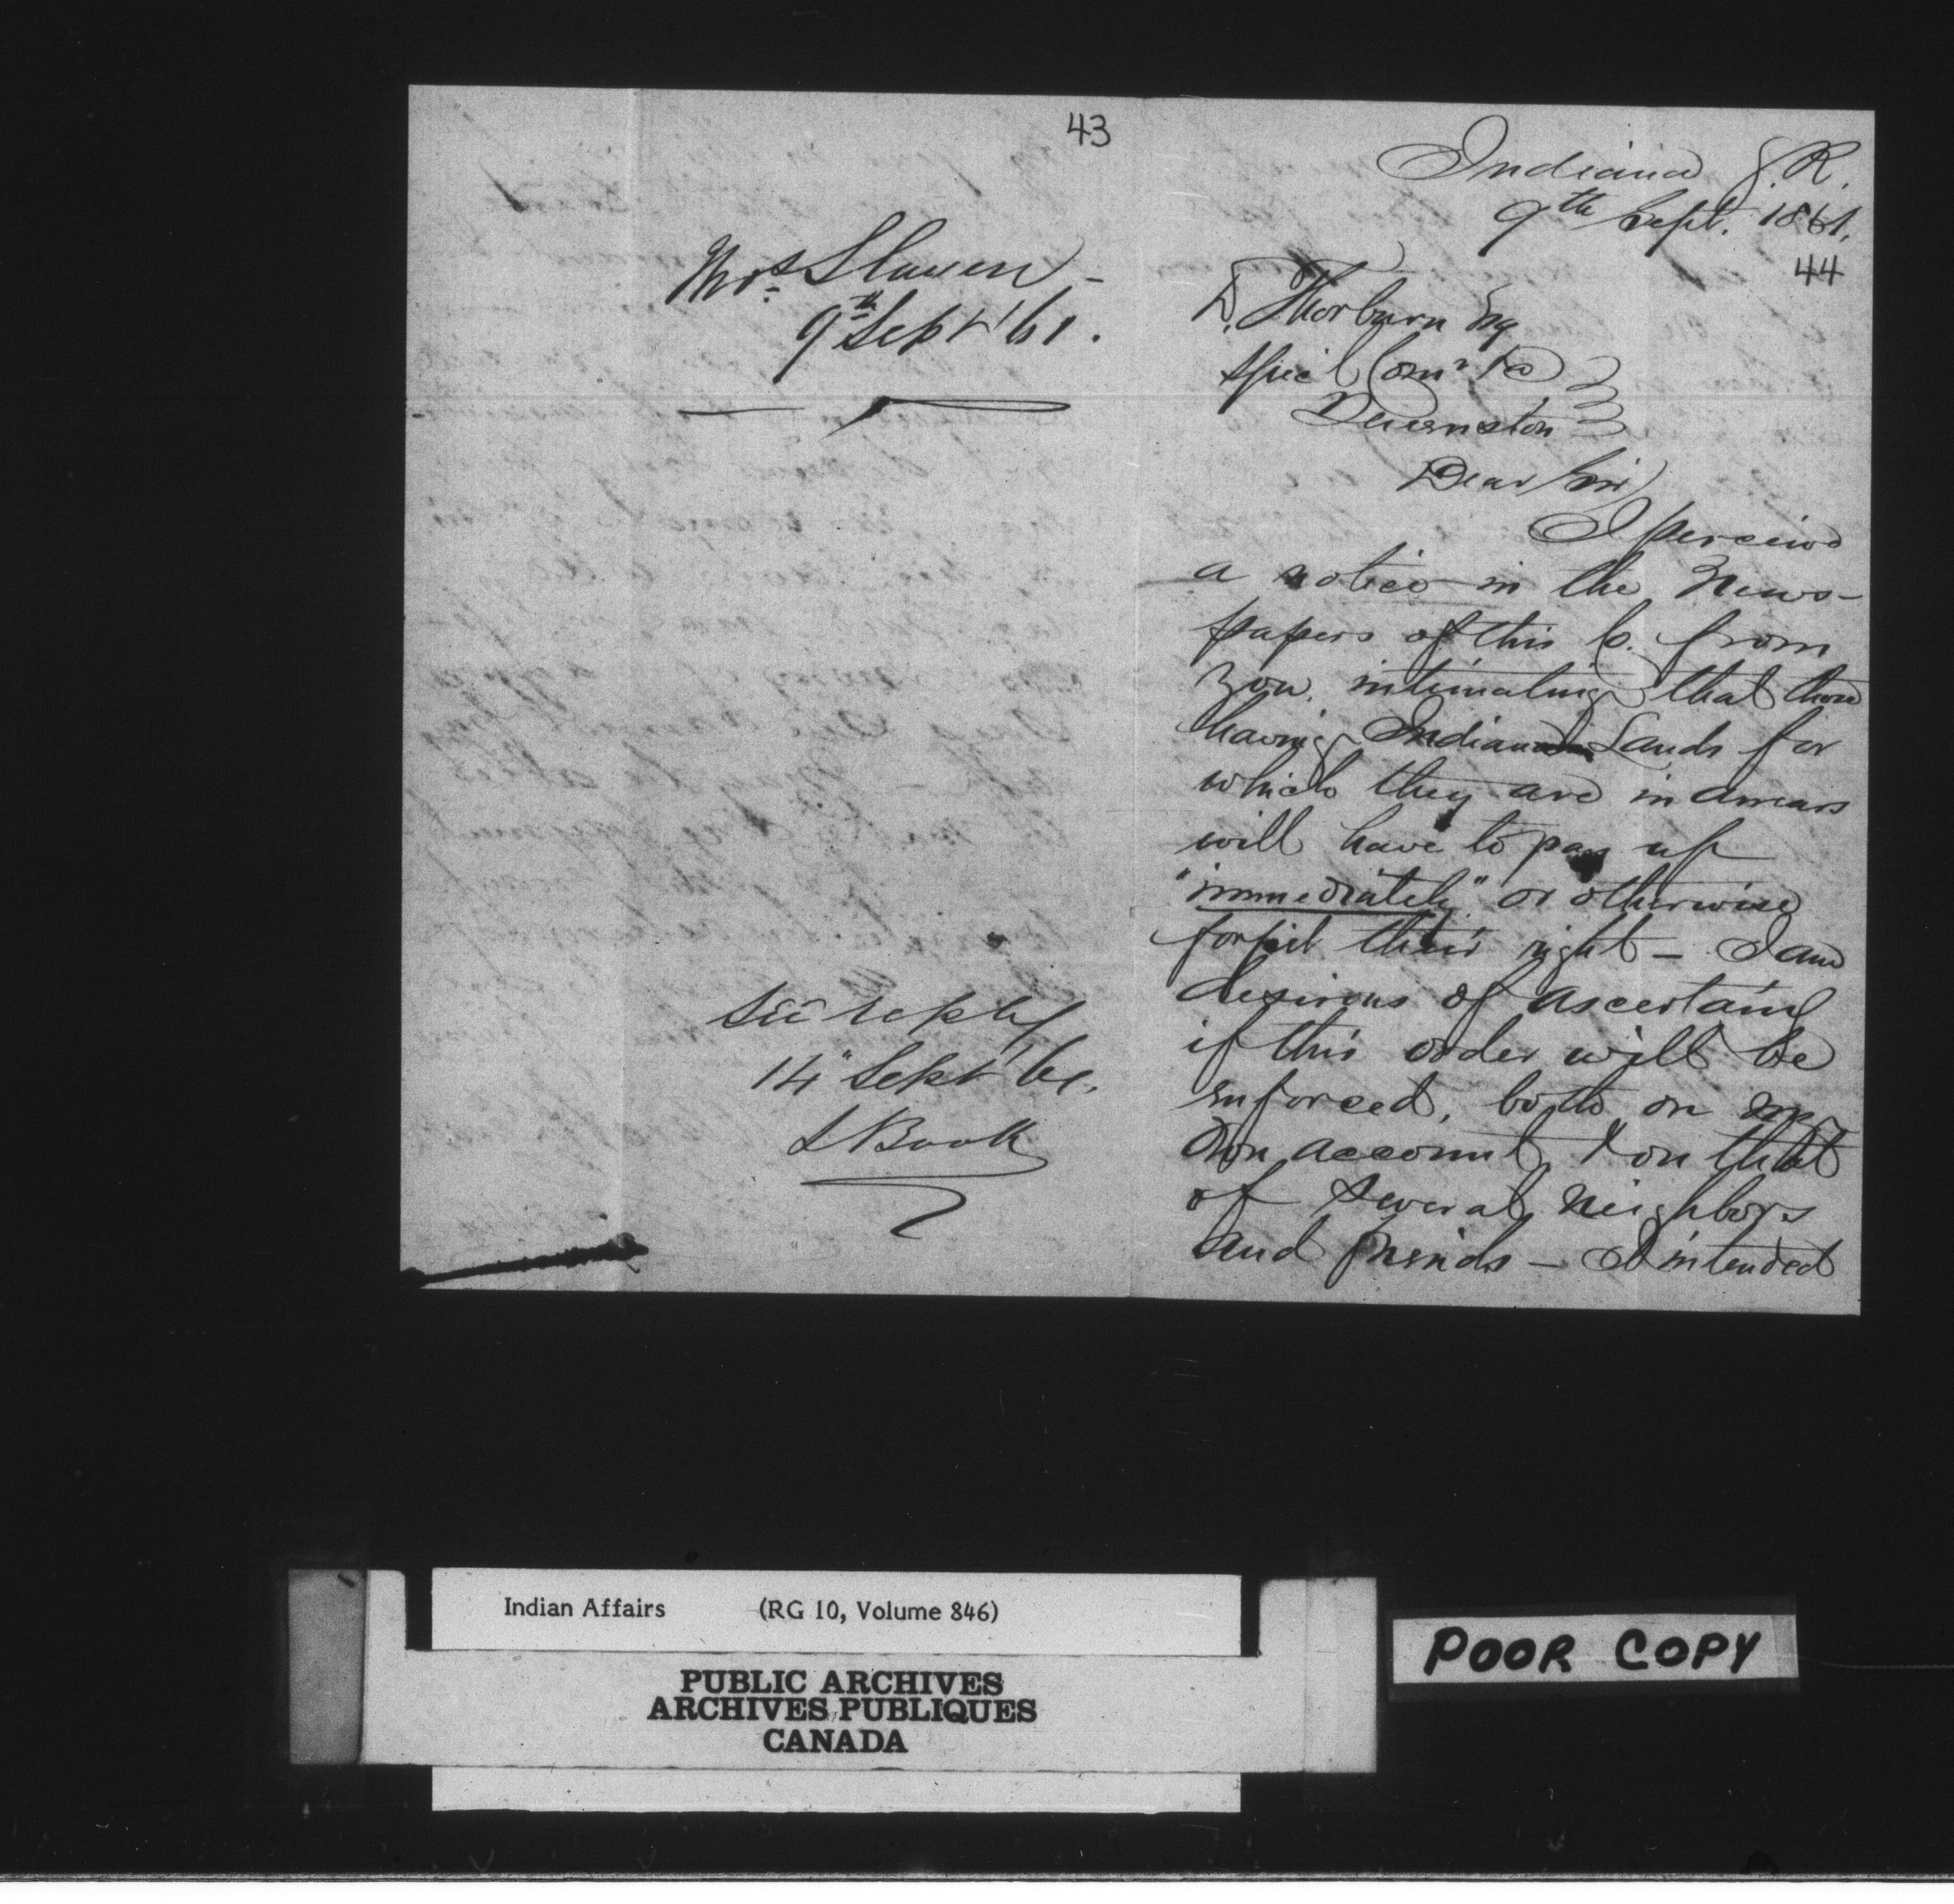 43
Mrs Slaven -
9th Sept '61.
See reply
14" Sept '61.
L Book
Indiana G. R.
9th Sept. 1861.
44
D. Thorburn Esq
Special Comr &c
Queenston
Dear Sir
I perceive
a notice in the News-
papers of this C. from
you, intimating that those
having Indian Lands for
which they are in arrears
will have to pay up
"immediately" or otherwise
forfeit their right - I am
desirous of ascertaing
if this order will be
enforced, both on my
own account & on that
of several neighbors
and friends - I intended
Indian Affairs (RG 10, Volume 846)
PUBLIC ARCHIVES
ARCHIVES PUBLIQUES
CANADA
POOR COPY